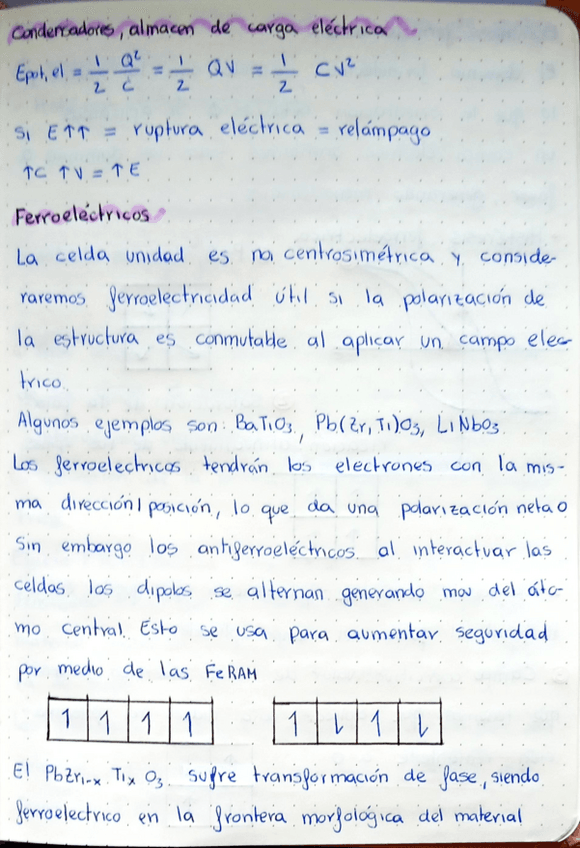 Condensadores, almacen de carga eléctrica
Epot, el = 1/2 Q²/C = 1/2 QV = 1/2 CV²
Si E↑↑ = ruptura eléctrica = relámpago
↑C ↑V = ↑E
Ferroeléctricos
La celda unidad es no centrosimétrica y conside-
raremos ferroelectricidad útil si la polarización de
la estructura es conmutable al aplicar un campo elec-
trico.
Algunos ejemplos son: BaTiO₃, Pb(Zr,Ti)O₃, LiNbO₃
Los ferroelectricos tendrán los electrones con la mis-
ma dirección/posición, lo que da una polarización neta 0
Sin embargo los antiferroeléctricos al interactuar las
celdas los dipolos se alternan generando mov del áto-
mo central. Esto se usa para aumentar seguridad
por medio de las FeRAM
↑ ↑ ↑ ↑ ↑ ↓ ↑ ↓
El PbZr₁₋ₓ Tiₓ O₃ sufre transformación de fase, siendo
ferroelectrico en la frontera morfológica del material